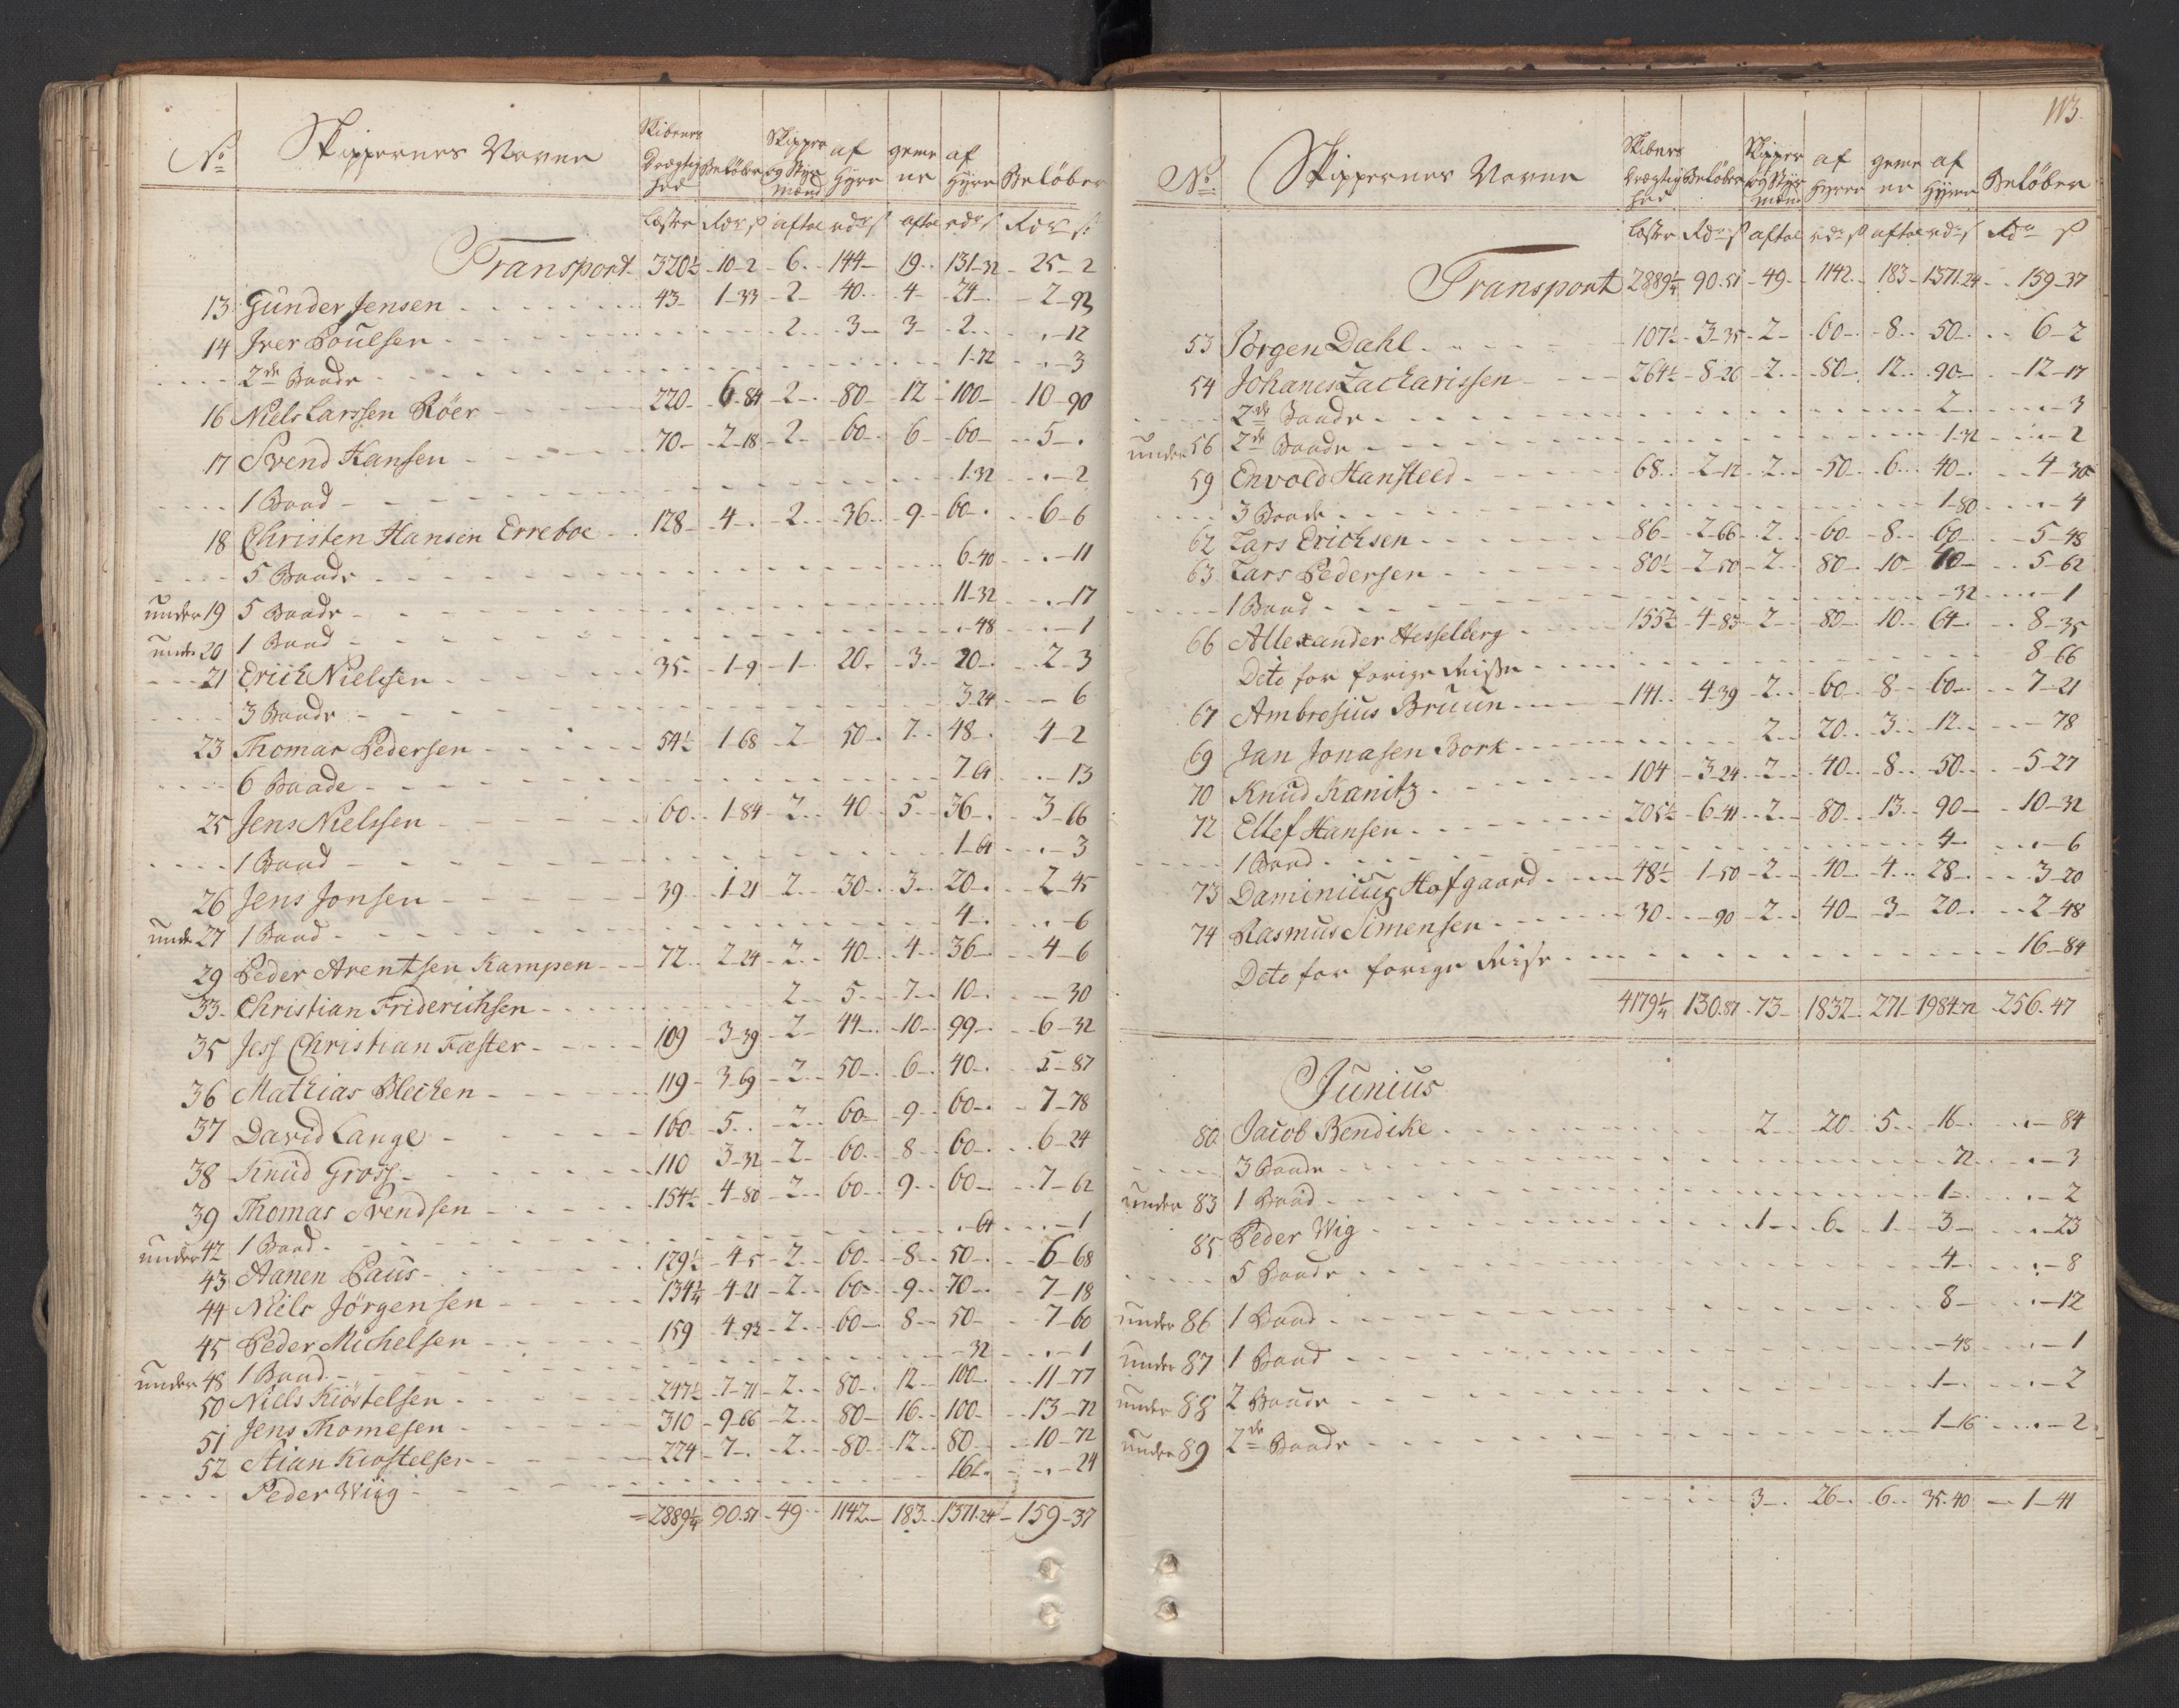 No Skippernes Navne Skibenes Drægtighed Beløber Skipper og Styrmænd af Hyre gemene af Hyre Beløber
Læster Rdr s aftal rdr s aftal rdr s Rdr s
Transport 320½ 10-2 6 144 19 131-32 25-2
13 Gunder Jensen 43 1-33 2 40 4 24 2-93
14 Iver Poulsen 2 3 3 2 -12
2de Baade 1-72 3
16 Niels Larssen Röer 220 6-84 2 80 12 100 10-90
17 Svend Hansen 70 2-18 2 60 6 60 5
1 Baad 1-32 2
18 Christen Hansen Erreboe 128 4 2 36 9 60 6-6
5 Baade 6-40 11
under 19 5 Baade 11-32 17
under 20 1 Baad 48 1
21 Erich Nielssen 35 1-9 1 20 3 20 2-3
3 Baade 3-24 6
23 Thomas Pedersen 54½ 1-68 2 50 7 48 4-2
6 Baade 7-64 13
25 Jens Nielssen 60 1-84 2 40 5 36 3-66
1 Baad 1-64 3
26 Jens Jonsen 39 1-21 2 30 3 20 2-45
under 27 1 Baad 4 6
29 Peder Arentsen Kampen 72 2-24 2 40 4 36 4-6
33 Christian Friderichsen 2 5 7 10 30
35 Jess Christian Fæster 109 3-39 2 44 10 99 6-32
36 Mathias Blechen 119 3-69 2 50 6 40 5-87
37 David Lange 160 5 2 60 9 60 7-78
38 Knud Gross 110 3-32 2 60 8 60 6-24
39 Thomas Svendsen 154½ 4-80 2 60 9 60 7-62
under 42 1 Baad 64 1
43 Aanen Paus 129½ 4-5 2 60 8 50 6-68
44 Niels Jörgensen 134¾ 4-21 2 60 9 70 7-18
45 Peder Michelsen 159 4-93 2 60 8 50 7-60
under 48 1 Baad 32 1
50 Niels Kiöstelsen 247½ 7-71 2 80 12 100 11-77
51 Jens Thomesen 310 9-66 2 80 16 100 13-72
52 Stian Kiostelsen 224 7 2 80 12 80 10-72
Peder Wiig 16 24
2889¼ 90.51 49 1142 183 1371.24 159-37
113.
No Skippernes Navne Skibenes Drægtighed Beløber Skipper og Styrmænd af Hyre gemene af Hyre Beløber
Læster Rdr s aftal rdr s aftal rdr s Rdr s
Transport 2889¼ 90.51 49 1142 183 1371.24 159-37
53 Jörgen Dahl 107½ 3-35 2 60 8 50 6-2
54 Johanes Zacharissen 264½ 8-26 2 80 12 90 12-17
2de Baade 2 3
under 56 2de Baade 1-32 2
59 Envold Hansteed 68 2-12 2 50 6 40 4-30
3 Baade 1-80 4
62 Lars Erichsen 86 2-66 2 60 8 60 5-48
63 Lars Pedersen 80½ 2-50 2 80 10 5-62
1 Baad 32 1
66 Allexander Hesselberg 155½ 4-83 2 80 10 64 8-35
Deto for forige Reise 8-66
67 Ambrosius Bruun 141 4-39 2 60 8 60 7-21
69 Jan Jonasen Bork 2 20 3 12 78
70 Knud Kanitz 104 3-24 2 40 8 50 5-27
72 Ellef Hansen 205½ 6-41 2 80 13 90 10-32
1 Baad 4 6
73 Daminicus Hofgaard 48½ 1-50 2 40 4 28 3-20
74 Rasmus Simensen 30 90 2 40 3 20 2-48
Deto for forige Reise 16-84
4179¼ 130.87 73 1832 271 1984-72 256.47
Junius
80 Jacob Bendike 2 20 5 16 84
3 Baade 72 3
under 83 1 Baad 1 2
85 Peder Wig 1 6 1 3 23
5 Baade 4 8
under 86 1 Baad 8 12
under 87 1 Baad 48 1
under 88 2 Baade 1 2
under 89 2de Baade 1-16 2
3 26 6 35.40 1-41